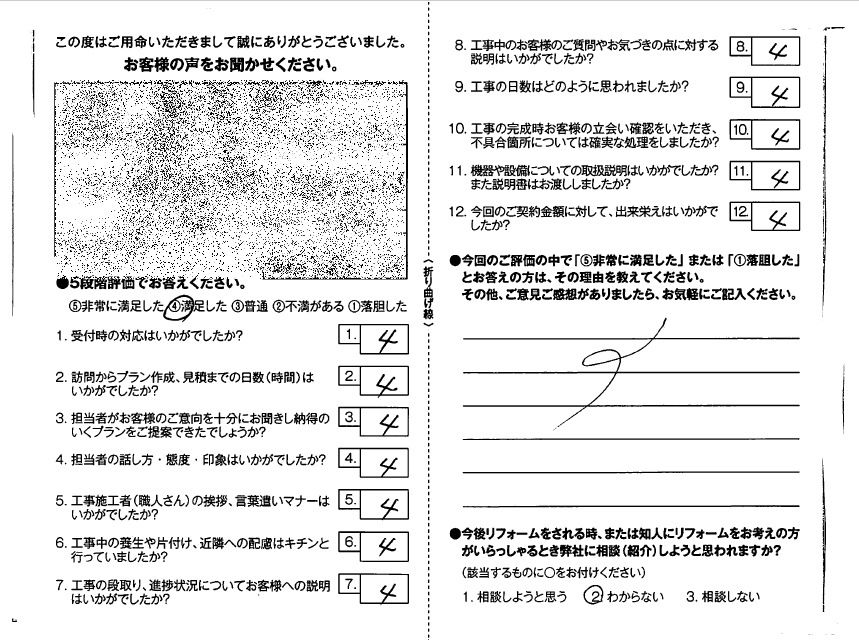 この度はご用命いただきまして誠にありがとうございました。
お客様の声をお聞かせください。
●5段階評価でお答えください。
⑤非常に満足した ④満足した ③普通 ②不満がある ①落胆した
1. 受付時の対応はいかがでしたか? 1. 4
2. 訪問からプラン作成、見積までの日数(時間)は 2. 4
いかがでしたか?
3. 担当者がお客様のご意向を十分にお聞きし納得の 3. 4
いくプランをご提案できたでしょうか?
4. 担当者の話し方・態度・印象はいかがでしたか? 4. 4
5. 工事施工者(職人さん)の挨拶、言葉遣いマナーは 5. 4
いかがでしたか?
6. 工事中の養生や片付け、近隣への配慮はキチンと 6. 4
行っていましたか?
7. 工事の段取り、進捗状況についてお客様への説明 7. 4
はいかがでしたか?
〈折り曲げ線〉
8. 工事中のお客様のご質問やお気づきの点に対する 8. 4
説明はいかがでしたか?
9. 工事の日数はどのように思われましたか? 9. 4
10. 工事の完成時お客様の立会い確認をいただき、 10. 4
不具合箇所については確実な処理をしましたか?
11. 機器や設備についての取扱説明はいかがでしたか? 11. 4
また説明書はお渡ししましたか?
12. 今回のご契約金額に対して、出来栄えはいかがで 12. 4
したか?
●今回のご評価の中で「⑤非常に満足した」または「①落胆した」
とお答えの方は、その理由を教えてください。
その他、ご意見ご感想がありましたら、お気軽にご記入ください。
●今後リフォームをされる時、または知人にリフォームをお考えの方
がいらっしゃるとき弊社に相談(紹介)しようと思われますか?
(該当するものに○をお付けください)
1. 相談しようと思う 2 わからない 3. 相談しない